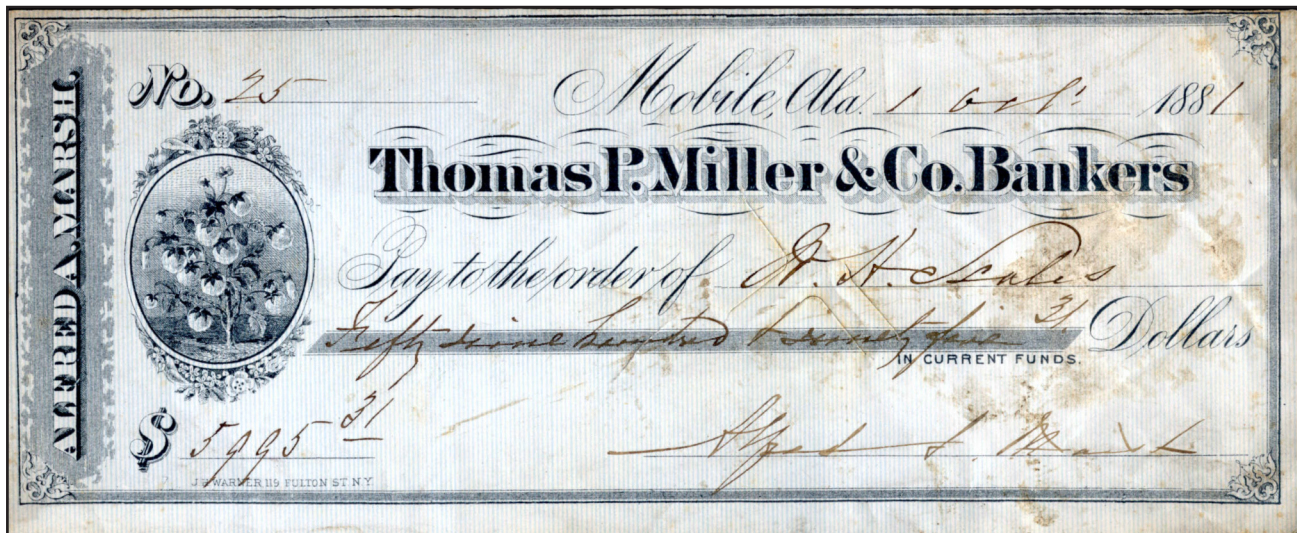 ALFRED A. MARSH.
No. 25
Mobile, Ala. 1 Oct. 1881
Thomas P. Miller & Co. Bankers
Pay to the order of W. H. Scales
Fifty nine hundred & ninety five 31 Dollars
IN CURRENT FUNDS.
$ 5995 31
Alfred A. Marsh
J B WARNER 119 FULTON ST N Y